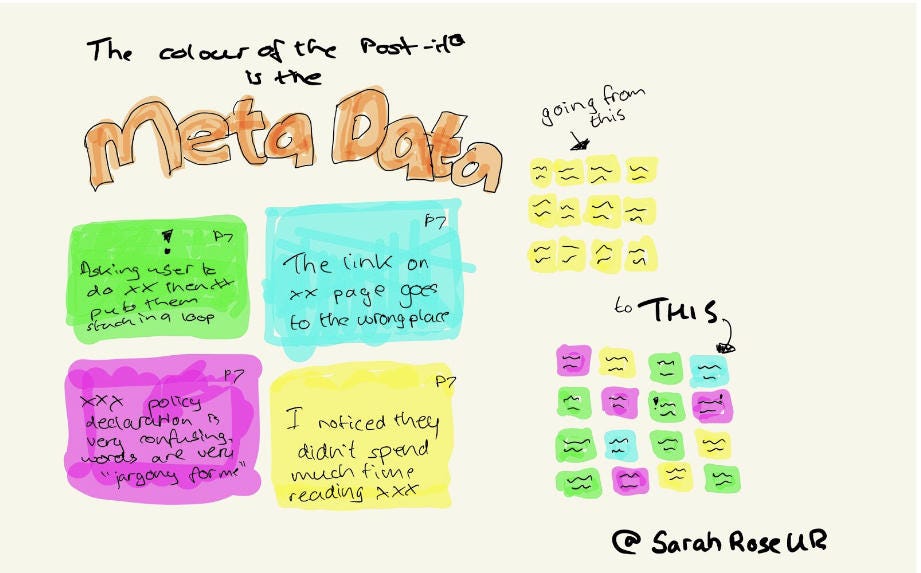 The colour of the Post-it
is the
Meta Data
going from
this
to THIS
! P7
Asking user to
do xx then
puts them
stuck in a loop
P7
The link on
xx page goes
to the wrong place
P7
xxx policy
declaration is
very confusing.
words are very
"jargony for me"
P7
I noticed they
didn't spend
much time
reading xxx
@ SarahRoseUR